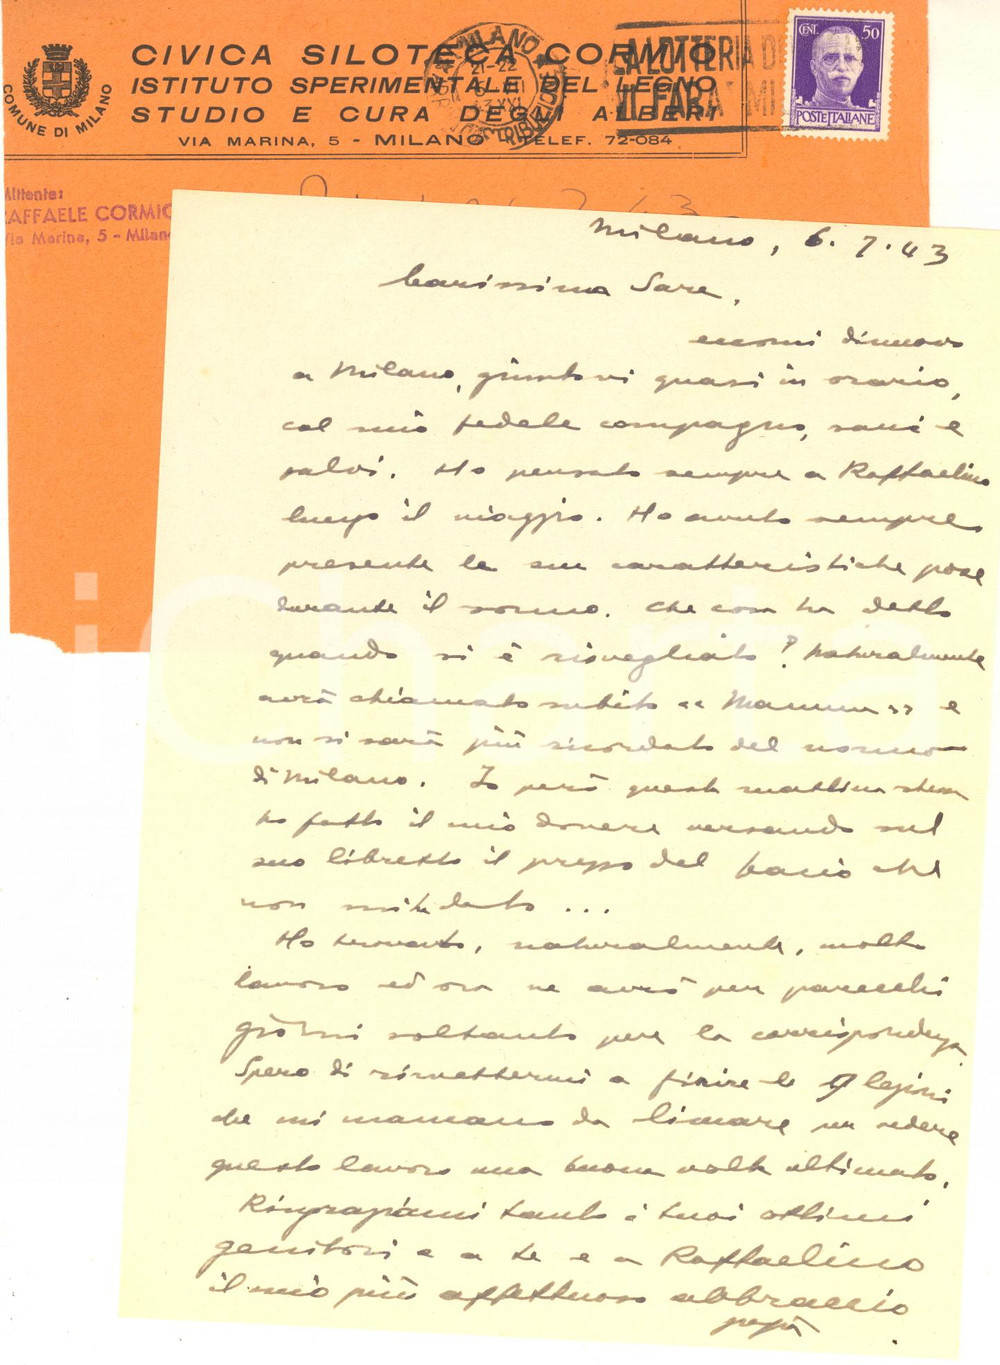 CIVICA SILOTECA CORMIO
ISTITUTO SPERIMENTALE DEL LEGNO
STUDIO E CURA DEGLI ALBERI
VIA MARINA, 5 - MILANO - TELEF. 72-084
COMUNE DI MILANO
MILANO
21-22
LOTTERIA
CENT. 50
POSTE ITALIANE
Mittente:
RAFFAELE CORMIO
Via Marina, 5 - Milano
Milano, 6.7.43
Carissima Sare,
eccomi dinuovo
a Milano, giuntovi quasi in orario,
col mio fedele compagno, sani e
salvi. Ho pensato sempre a Raffaelino
lungo il viaggio. Ho avuto sempre
presente le sue caratteristiche pose
durante il sonno. Che cosa ha detto
quando si è risvegliato? Naturalmente
avrà chiamato subito "Mamma" e
non si sarà più ricordato del nonno
di Milano. Io però questa mattina stessa
ho fatto il mio dovere versando sul
suo libretto il prezzo del bacio che
non mi ha dato...
Ho trovato, naturalmente, molto
lavoro ed ora ne avrò per parecchi
giorni soltanto per la corrispondenza.
Spero di rimettermi a finire le 9 lezioni
che mi mancano da limare per vedere
questo lavoro una buona volta ultimato.
Ringraziami tanto i tuoi ottimi
genitori e a te e a Raffaelino
il mio più affettuoso abbraccio
papà
iCharta